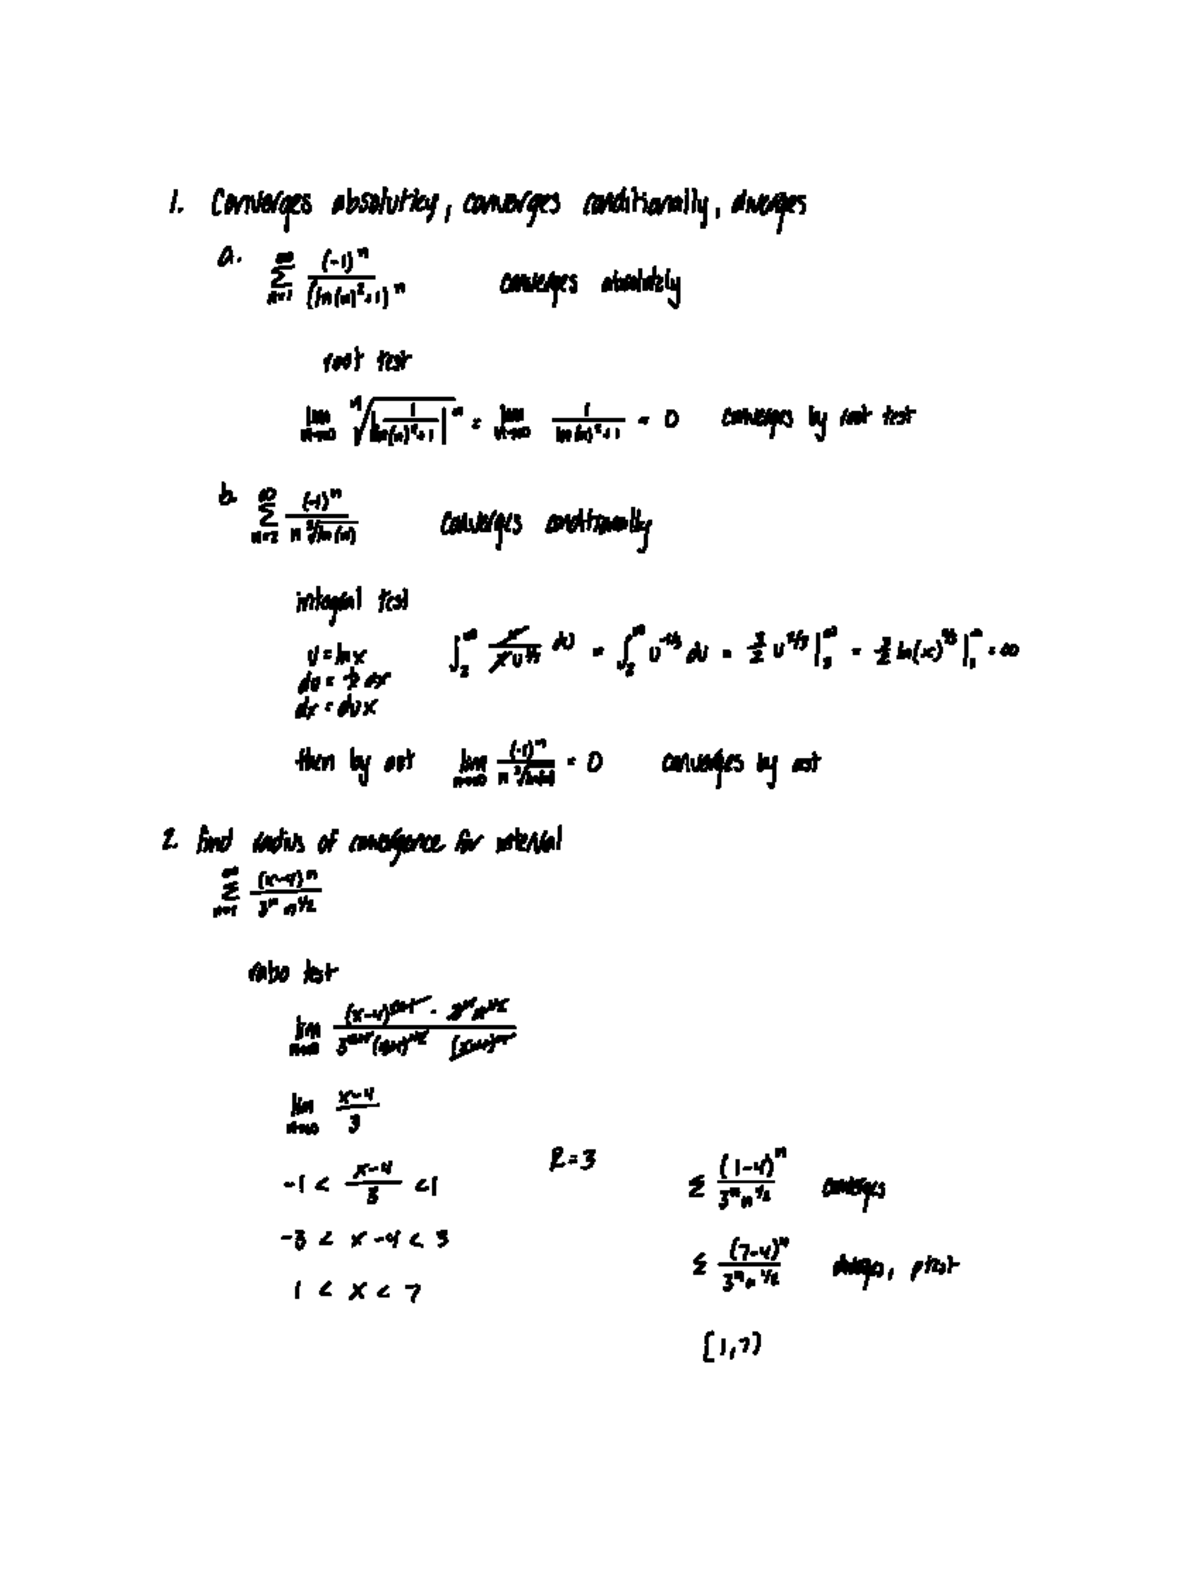 1. Converges absolutley, converges conditionally, diverges
a. ∞ Σ n=1 (-1)^n / (ln(n)^2+1)^n converges absolutely
root test
lim n→∞ n√|1/(ln(n)^2+1)|^n = lim n→∞ 1/(ln(n)^2+1) = 0 converges by root test
b. ∞ Σ n=2 (-1)^n / (n ³√ln(n)) converges conditionally
integral test
u = ln x ∫_2^∞ x/(x u^{1/3}) du = ∫_2^∞ u^{-1/3} du = 3/2 u^{2/3} |^∞ = 3/2 ln(x)^{2/3} |^∞ = ∞
du = 1/x dx
dx = du x
then by ast lim n→∞ (-1)^n / (n ³√ln(n)) = 0 converges by ast
2. find radius of convergence for interval
∞ Σ n=1 (x-4)^n / (3^n n^{1/2})
ratio test
lim n→∞ (x-4)^{n+1} · 3^n n^{1/2} / (3^{n+1} (n+1)^{1/2} (x-4)^n)
lim n→∞ (x-4)/3
-1 < (x-4)/3 < 1 R = 3 Σ (1-4)^n / (3^n n^{1/2}) converges
-3 < x-4 < 3
1 < x < 7 Σ (7-4)^n / (3^n n^{1/2}) diverges, ptest
[1,7)